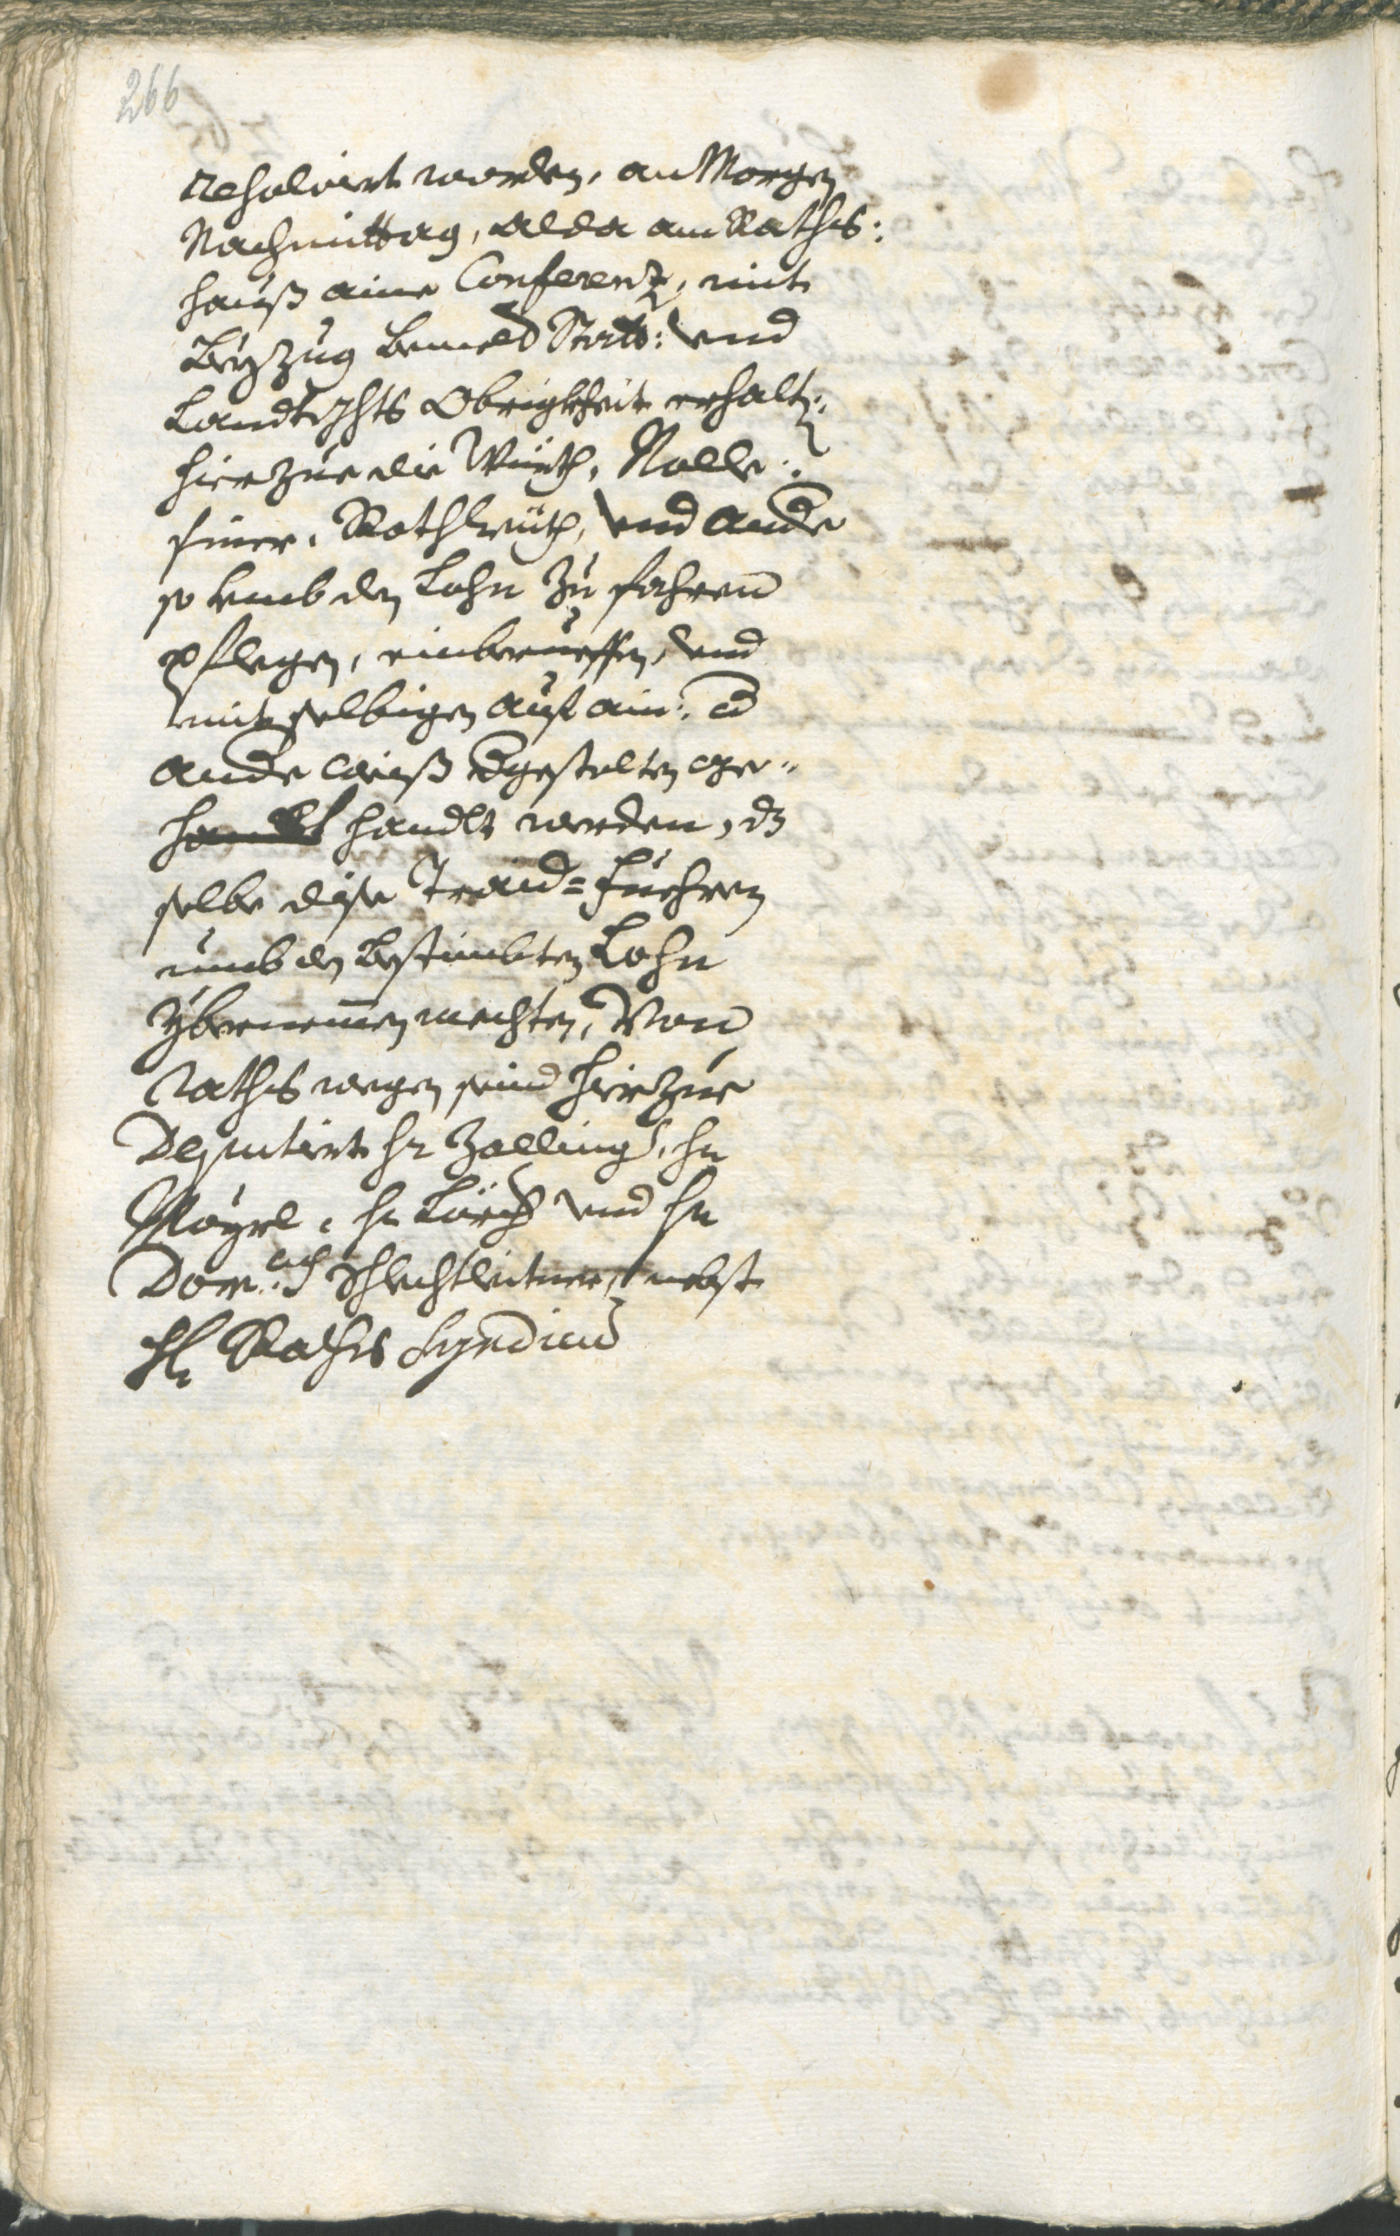 266
resolviert worden, an Morgen
Nachmittag, alda am Raths:
hauß aine Conferenz, mit
Beyzug bemelt Statt: und
Landtgchts Obrigkheit erhalt:,
hierzue die Würth,
finer, Rothleüth, und ande
so umb den Lohn zu fahren
pflegen, einberueffen, und
mit selbigen auf ain: und
ande weiß dgestalten ge-
handlt werden, dz
selbe dise Traid=fuehren
umb den bestimbten Lohn
ybernemmen mechten, Von
Raths wegen seind hierzue
Deputiert hr Zallinger, hr
Mayrl, hr und hr
Dom: Schlechtleitner, nebst
H: Raths Syndico